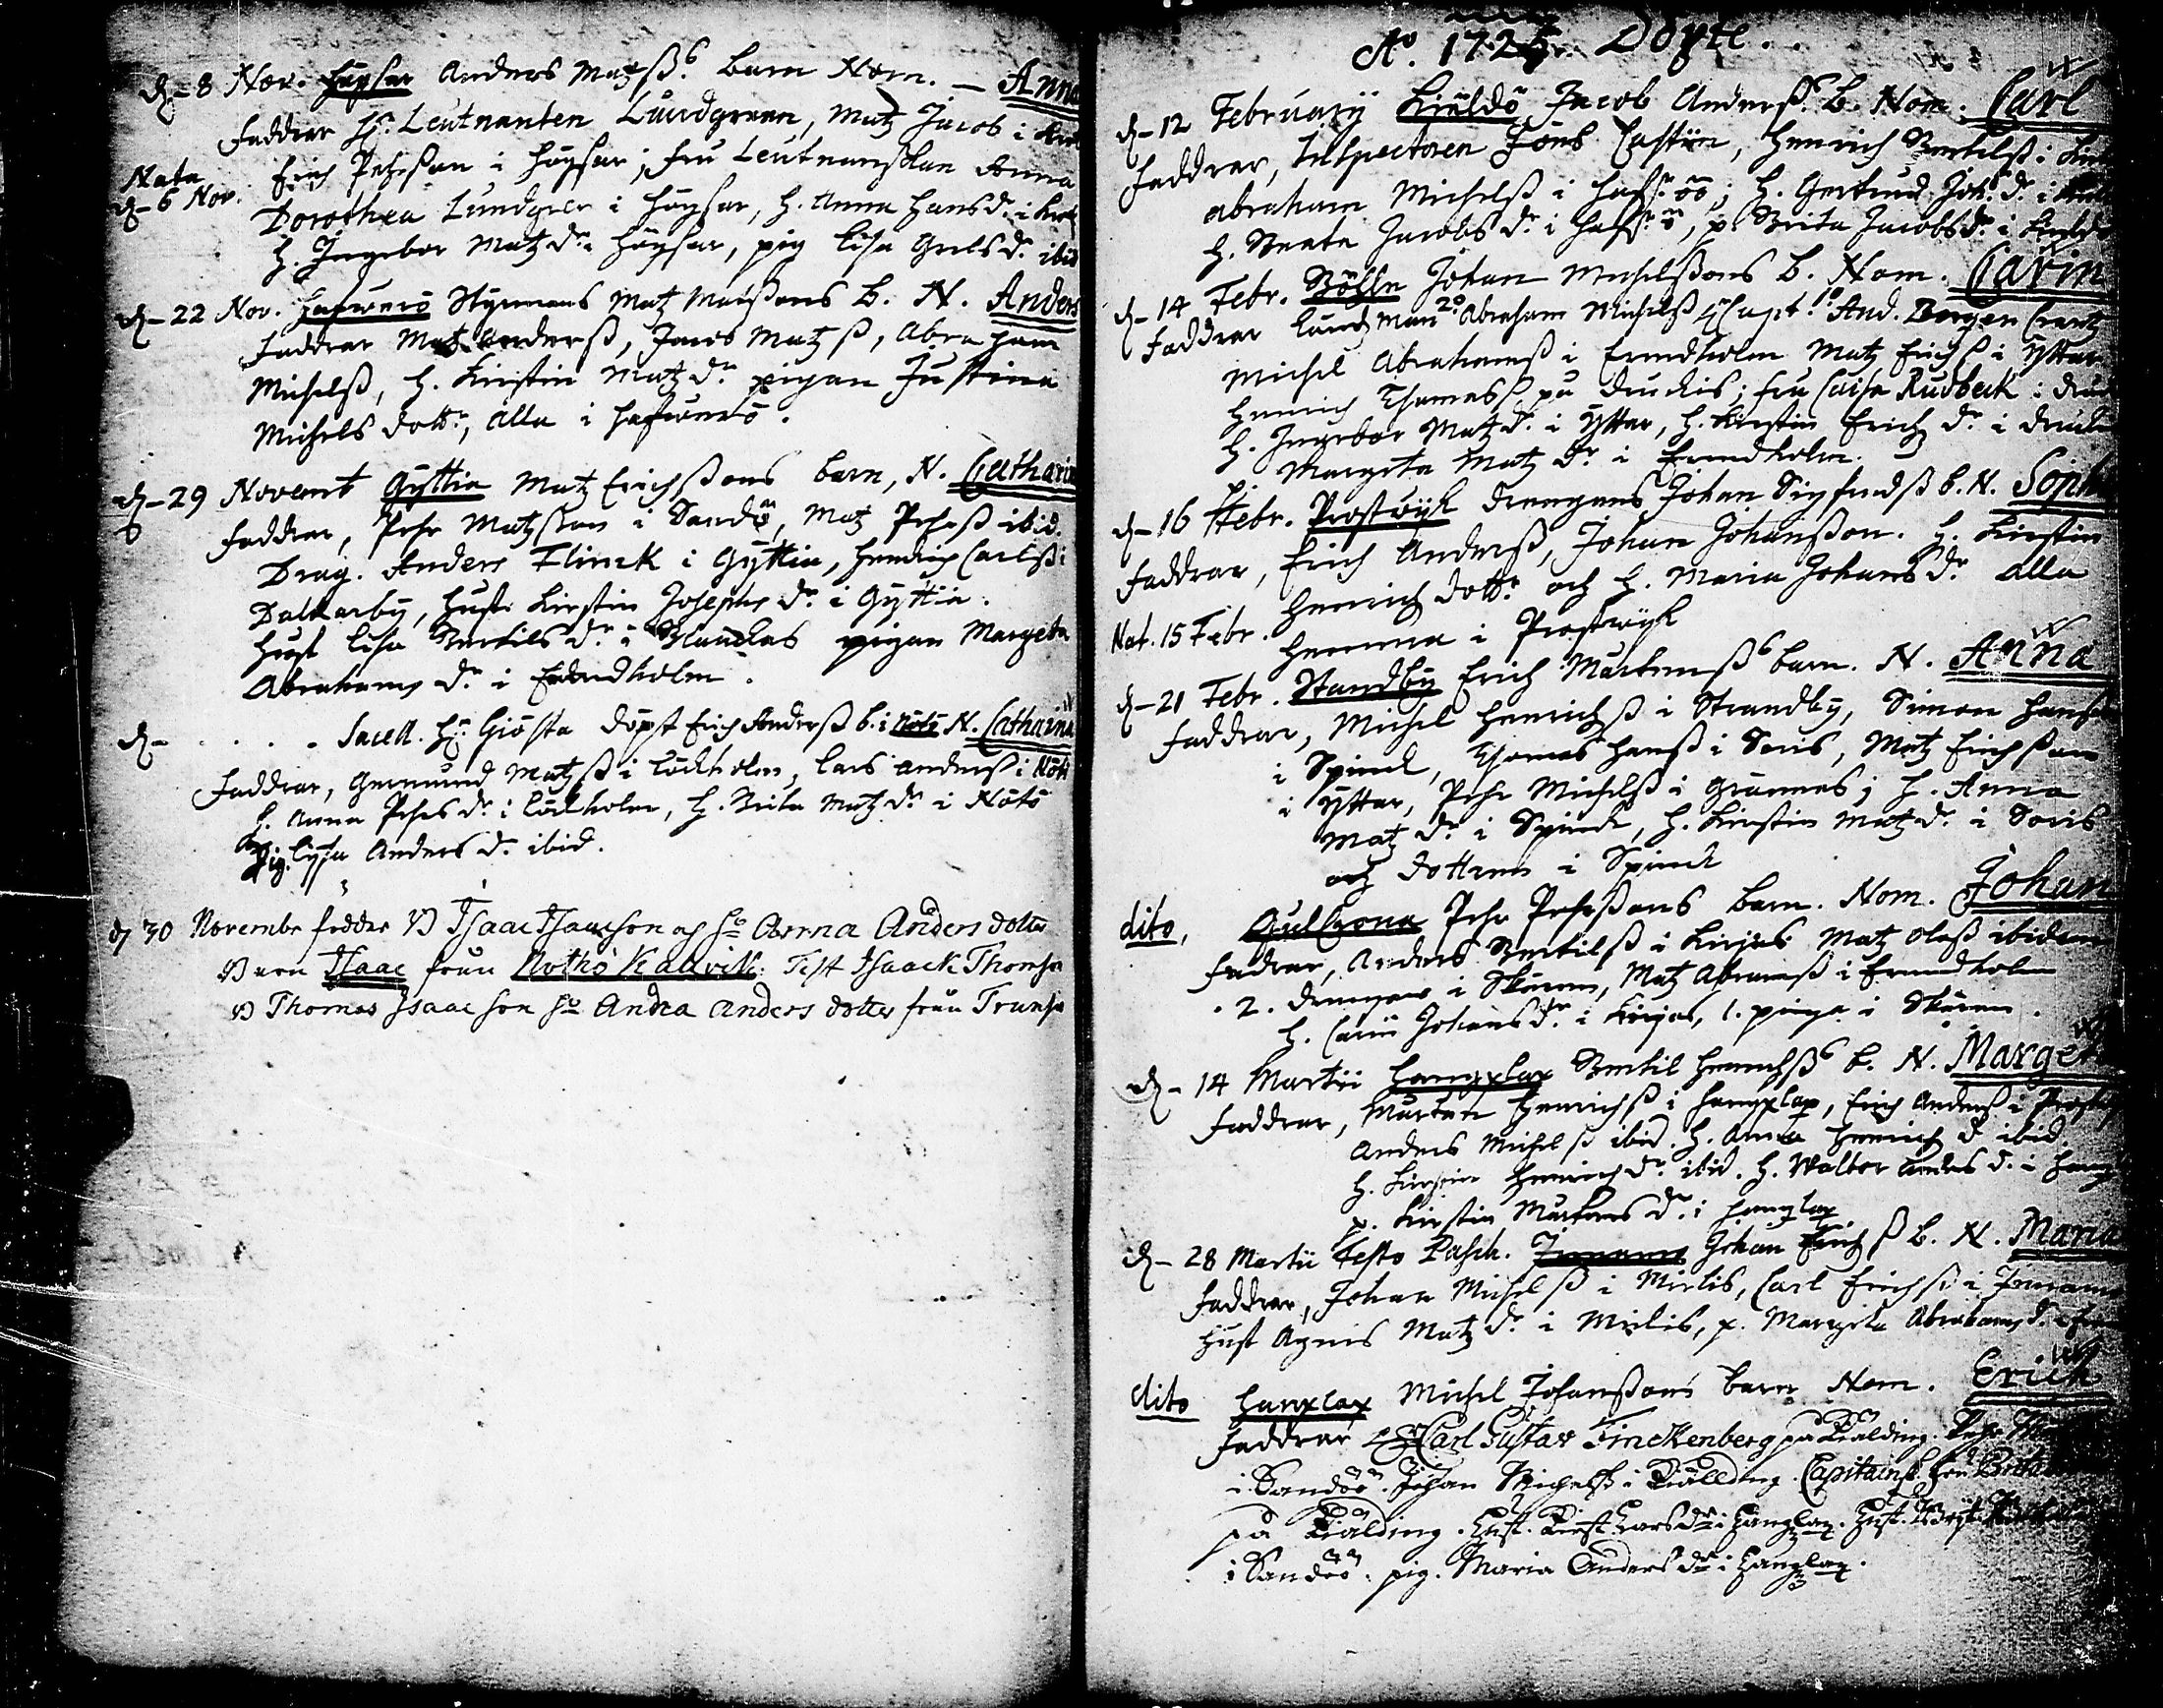 d. 8 Nov. Höysar Anders Matzß barn Nom. — Anna
Faddrar H. Leutnanten Lundgreen, Matz Jacob i
Nata
d. 6 Nov.
Erich Pehrson i Höysar; fru Leutnanskan Anna
Dorothea Lundgren i Höysar, H. Anna Hansdr. i
H. Ingebor Matzdr. i Höysar, pig Lisa Grelsdr. ibid
d. 22 Nov. Hafwerö Styrmans Matz Matßons b. N. Anders
Faddrar Matz Anderß, Jacob Matzß, Abraham
Michelß, H. Kirstin Matzdr. pigan Justina
Michels dottr, alla i Hafwerö.
d. 29 Novemb Gyttia Matz Erichßons barn, N. Catharin
Faddrar, Pehr Matzson i Sandö, Matz Pehrß ibid.
Drag. Anders Flinck i Gyttia, Hendrich Carlß i
Dalkarby, hust. Kirstin Josephs dr. i Gyttia.
Hust Lisa Bertils dr. i Blauckas pigan Margeta
Abrahams dr. i Ernholm.
d. . . . . Sacell. Hr. Giösta döpt Erich Anderß b. i Nötö N. Catharina
Faddrar, Germund Matzß i Lökholm, Lars Anderß i Nötö
H. Anna Pehrs dr. i Lökholm, H. Brita Matz dr. i Nötö
Pig. Lysa Anders dr. ibid.
d 30 Novembr föddes B Isaac Isaacson og H. Anna Anders dotter
Barn Isaac från Nothö Kaarvik. Test Isaack Thomson
B Thomas Isaacson H. Anna Anders dotter från Trunsö
Ao. 1725. Döpte.
d. 12 February Kiäldö Jacob Anderß. b. Nom. Carl
Faddrar, Inspectoren Jöns Castin, Henrich Bertilß i
Abraham Michelß i Haf öö; H. Gertrud Joh. dr. i
H. Beata Jacobs dr. i Haf. ö, p. Brita Jacobs dr. i Kiäldö
d. 14 Febr. Bölle Johan Michelßons b. Nom. Carin
Faddrar Lundzman 2o Abraham Michelß 1o Capt. And. Bergen Crantz
Michel Abrahamß i Ernholm Matz Erichß i Yttar
Henrich Thomasß på Druckis; fru Caisa Rudbeck i
H. Ingebor Matz dr. i Yttar, H. Kirstin Erichz dr. i
p. Margeta Matz dr. i Ernholm.
d. 16 Febr. Prostwijk drengens Johan Sigfredß b. N. Soph
Faddrar, Erich Anderß, Johan Johanßon. H. Kirstin
Henrich dottr och H. Maria Johans dr. alla
Nat. 15 Febr. hemma i Prostwijk
d. 21 Febr. Standby Erich Mårtensß barn. N. Anna
Faddrar, Michel Henrichß i Strandby, Simon Hanson
i Spinck, Thomas Hansß i Soris, Matz Erichson
i Yttar, Pehr Michelß i Grannas; H. Anna
Matz dr. i Spinck, H. Kirstin Matz dr. i Soris
och dottren i Spinck
dito, Gulkrona Pehr Pehrßons barn. Nom. Johan
Faddrar, Anders Bertilß i Kirjas Matz Olaß ibidem
2. drengar i Skären, Matz Abramß i Ernholm
H. Carin Johans dr. i Kirjas, 1. piga i Skären.
d. 14 Martii Hangxlax Bertil Henrichß b. N. Marget
Faddrar, Mårten Henrichß i Hangxlax, Erich Anderß i
Anders Michelß ibid. H. Anna Henrich d. ibid.
H. Kirstin Henrich dr. ibid. H. Walbor Anders d. i
p. Kirstin Mårtens dr. i Hangxlax
d. 28 Martii Festo Pasch. Innamo Johan Erichß b. N. Maria
Faddrar, Johan Michelß i Mielis, Carl Erichß i Innamo
Hust Agnis Matz dr. i Mielis, p. Margeta Abrahams d. i
dito Hanxlax Michel Johanßons barn Nom. Erich
Faddrar Carl Gustav Finckenberg på Kialding. Pehr
i Sandöö. Johan Michelß i Kiällding. Capitainsk fru
på Kialding. Hust. Kirst. Larsdr i Hangxlax. Hust.
i Sandöö. pig. Maria Anders dr i Hangxlax.